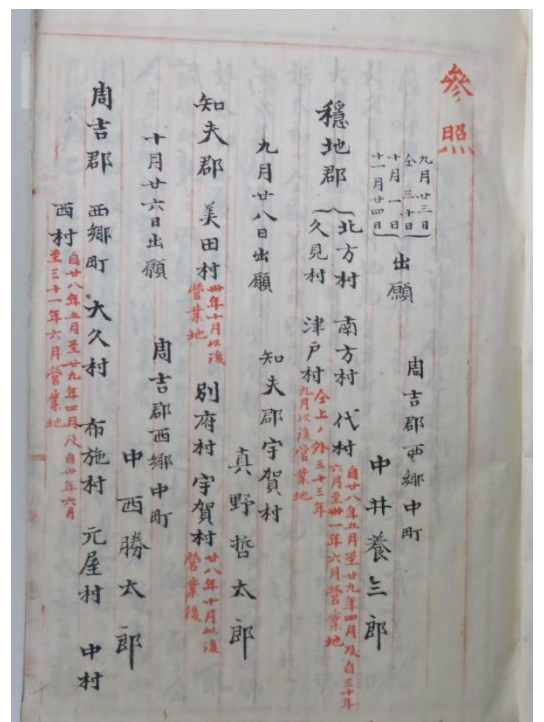 參照
九月廿三日
仝 三十日
十月一日
十一月廿四日
出願
周吉郡西郷中町
中井養三郎
穩地郡
北方村 南方村 代村
自廿八年五月至廿九年四月及自三十年
六月至卅一年六月營業地
久見村 津戸村
仝上ノ外三十三年
九月以後營業地
九月廿八日出願
知夫郡宇賀村
真野哲太郎
知夫郡 美田村
卅年十月以後
營業地
別府村 宇賀村
廿八年十月以後
營業後
十月廿六日出願
周吉郡西郷中町
中西勝太郎
周吉郡 西郷町 大久村 布施村 元屋村 中村
西村
自廿八年五月至廿九年四月及自卅年六月
至三十一年六月營業地